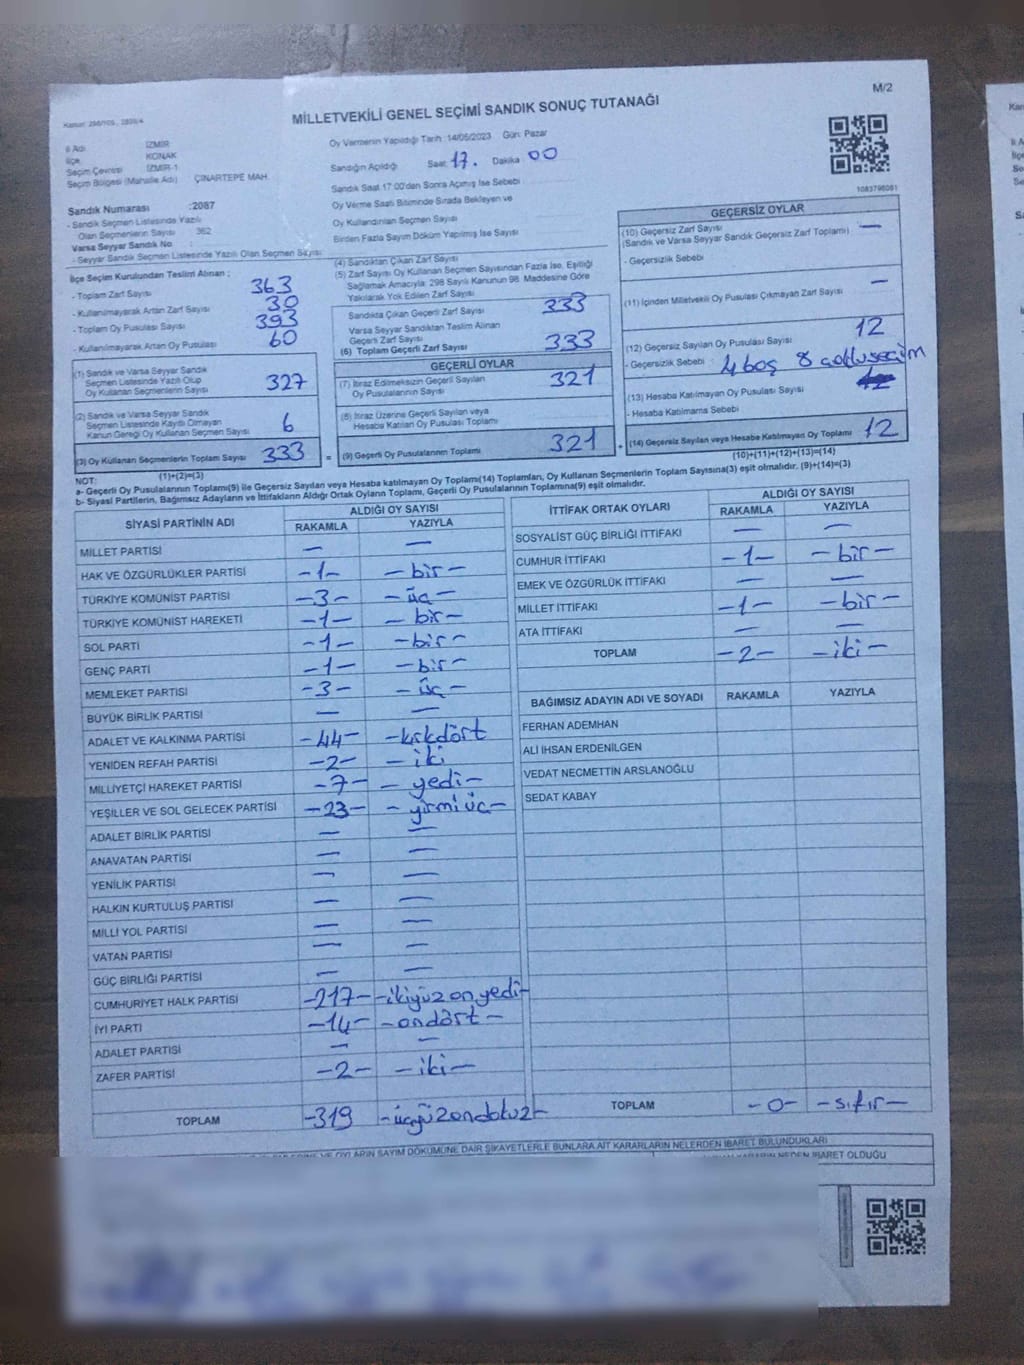 M/2
MİLLETVEKİLİ GENEL SEÇİMİ SANDIK SONUÇ TUTANAĞI
İl Adı İZMİR
İlçe KONAK
Seçim Çevresi İZMİR-1
Seçim Bölgesi (Mahalle Adı) ÇINARTEPE MAH.
Sandık Numarası :2087
- Sandık Seçmen Listesinde Yazılı
Olan Seçmenlerin Sayısı 362
Varsa Seyyar Sandık No
- Seyyar Sandık Seçmen Listesinde Yazılı Olan Seçmen Sayısı
Oy Vermenin Yapıldığı Tarih :14/05/2023 Gün: Pazar
Sandığın Açıldığı Saat: 17. Dakika 00
Sandık Saat 17:00'den Sonra Açılmış İse Sebebi
Oy Verme Saati Bitiminde Sırada Bekleyen ve
Oy Kullandırılan Seçmen Sayısı
Birden Fazla Sayım Döküm Yapılmış İse Sayısı
1083798081
İlçe Seçim Kurulundan Teslim Alınan :
- Toplam Zarf Sayısı 363
- Kullanılmayarak Artan Zarf Sayısı 30
- Toplam Oy Pusulası Sayısı 393
- Kullanılmayarak Artan Oy Pusulası 60
(1) Sandık ve Varsa Seyyar Sandık
Seçmen Listesinde Yazılı Olup
Oy Kullanan Seçmenlerin Sayısı 327
(2) Sandık ve Varsa Seyyar Sandık
Seçmen Listesinde Kayıtlı Olmayan
Kanun Gereği Oy Kullanan Seçmen Sayısı 6
(3) Oy Kullanan Seçmenlerin Toplam Sayısı 333
(1)+(2)=(3)
(4) Sandıktan Çıkan Zarf Sayısı
(5) Zarf Sayısı Oy Kullanan Seçmen Sayısından Fazla İse, Eşitliği
Sağlamak Amacıyla; 298 Sayılı Kanunun 98. Maddesine Göre
Yakılarak Yok Edilen Zarf Sayısı
Sandıkta Çıkan Geçerli Zarf Sayısı 333
Varsa Seyyar Sandıktan Teslim Alınan
Geçerli Zarf Sayısı
(6) Toplam Geçerli Zarf Sayısı 333
GEÇERLİ OYLAR
(7) İtiraz Edilmeksizin Geçerli Sayılan
Oy Pusulalarının Sayısı 321
(8) İtiraz Üzerine Geçerli Sayılan veya
Hesaba Katılan Oy Pusulası Toplamı
= (9) Geçerli Oy Pusulalarının Toplamı 321 +
GEÇERSİZ OYLAR
(10) Geçersiz Zarf Sayısı —
(Sandık ve Varsa Seyyar Sandık Geçersiz Zarf Toplamı)
- Geçersizlik Sebebi
(11) İçinden Milletvekili Oy Pusulası Çıkmayan Zarf Sayısı —
(12) Geçersiz Sayılan Oy Pusulası Sayısı 12
- Geçersizlik Sebebi : 4 boş 8 çoklu seçim
(13) Hesaba Katılmayan Oy Pusulası Sayısı
- Hesaba Katılmama Sebebi
(14) Geçersiz Sayılan veya Hesaba Katılmayan Oy Toplamı 12
(10)+(11)+(12)+(13)=(14)
NOT:
a- Geçerli Oy Pusulalarının Toplamı(9) ile Geçersiz Sayılan veya Hesaba katılmayan Oy Toplamı(14) Toplamları, Oy Kullanan Seçmenlerin Toplam Sayısına(3) eşit olmalıdır. (9)+(14)=(3)
b- Siyasi Partilerin, Bağımsız Adayların ve İttifakların Aldığı Ortak Oyların Toplamı, Geçerli Oy Pusulalarının Toplamına(9) eşit olmalıdır.
SİYASİ PARTİNİN ADI ALDIĞI OY SAYISI
RAKAMLA YAZIYLA
MİLLET PARTİSİ — —
HAK VE ÖZGÜRLÜKLER PARTİSİ -1- -bir-
TÜRKİYE KOMÜNİST PARTİSİ -3- -üç-
TÜRKİYE KOMÜNİST HAREKETİ -1- -bir-
SOL PARTİ -1- -bir-
GENÇ PARTİ -1- -bir-
MEMLEKET PARTİSİ -3- -üç-
BÜYÜK BİRLİK PARTİSİ — —
ADALET VE KALKINMA PARTİSİ -44- -kırkdört
YENİDEN REFAH PARTİSİ -2- -iki
MİLLİYETÇİ HAREKET PARTİSİ -7- -yedi-
YEŞİLLER VE SOL GELECEK PARTİSİ -23- -yirmi üç-
ADALET BİRLİK PARTİSİ — —
ANAVATAN PARTİSİ — —
YENİLİK PARTİSİ — —
HALKIN KURTULUŞ PARTİSİ — —
MİLLİ YOL PARTİSİ — —
VATAN PARTİSİ — —
GÜÇ BİRLİĞİ PARTİSİ — —
CUMHURİYET HALK PARTİSİ -217- -ikiyüz onyedi-
İYİ PARTİ -14- -ondört-
ADALET PARTİSİ — —
ZAFER PARTİSİ -2- -iki-
TOPLAM -319 -üçyüzondokuz-
İTTİFAK ORTAK OYLARI ALDIĞI OY SAYISI
RAKAMLA YAZIYLA
SOSYALİST GÜÇ BİRLİĞİ İTTİFAKI — —
CUMHUR İTTİFAKI -1- -bir-
EMEK VE ÖZGÜRLÜK İTTİFAKI — —
MİLLET İTTİFAKI -1- -bir-
ATA İTTİFAKI — —
TOPLAM -2- -iki-
BAĞIMSIZ ADAYIN ADI VE SOYADI RAKAMLA YAZIYLA
FERHAN ADEMHAN
ALİ İHSAN ERDENİLGEN
VEDAT NECMETTİN ARSLANOĞLU
SEDAT KABAY
TOPLAM -0- -sıfır-
VE OYLARIN SAYIM DÖKÜMÜNE DAİR ŞİKAYETLERLE BUNLARA AİT KARARLARIN NELERDEN İBARET BULUNDUKLARI
NEDEN İBARET OLDUĞU